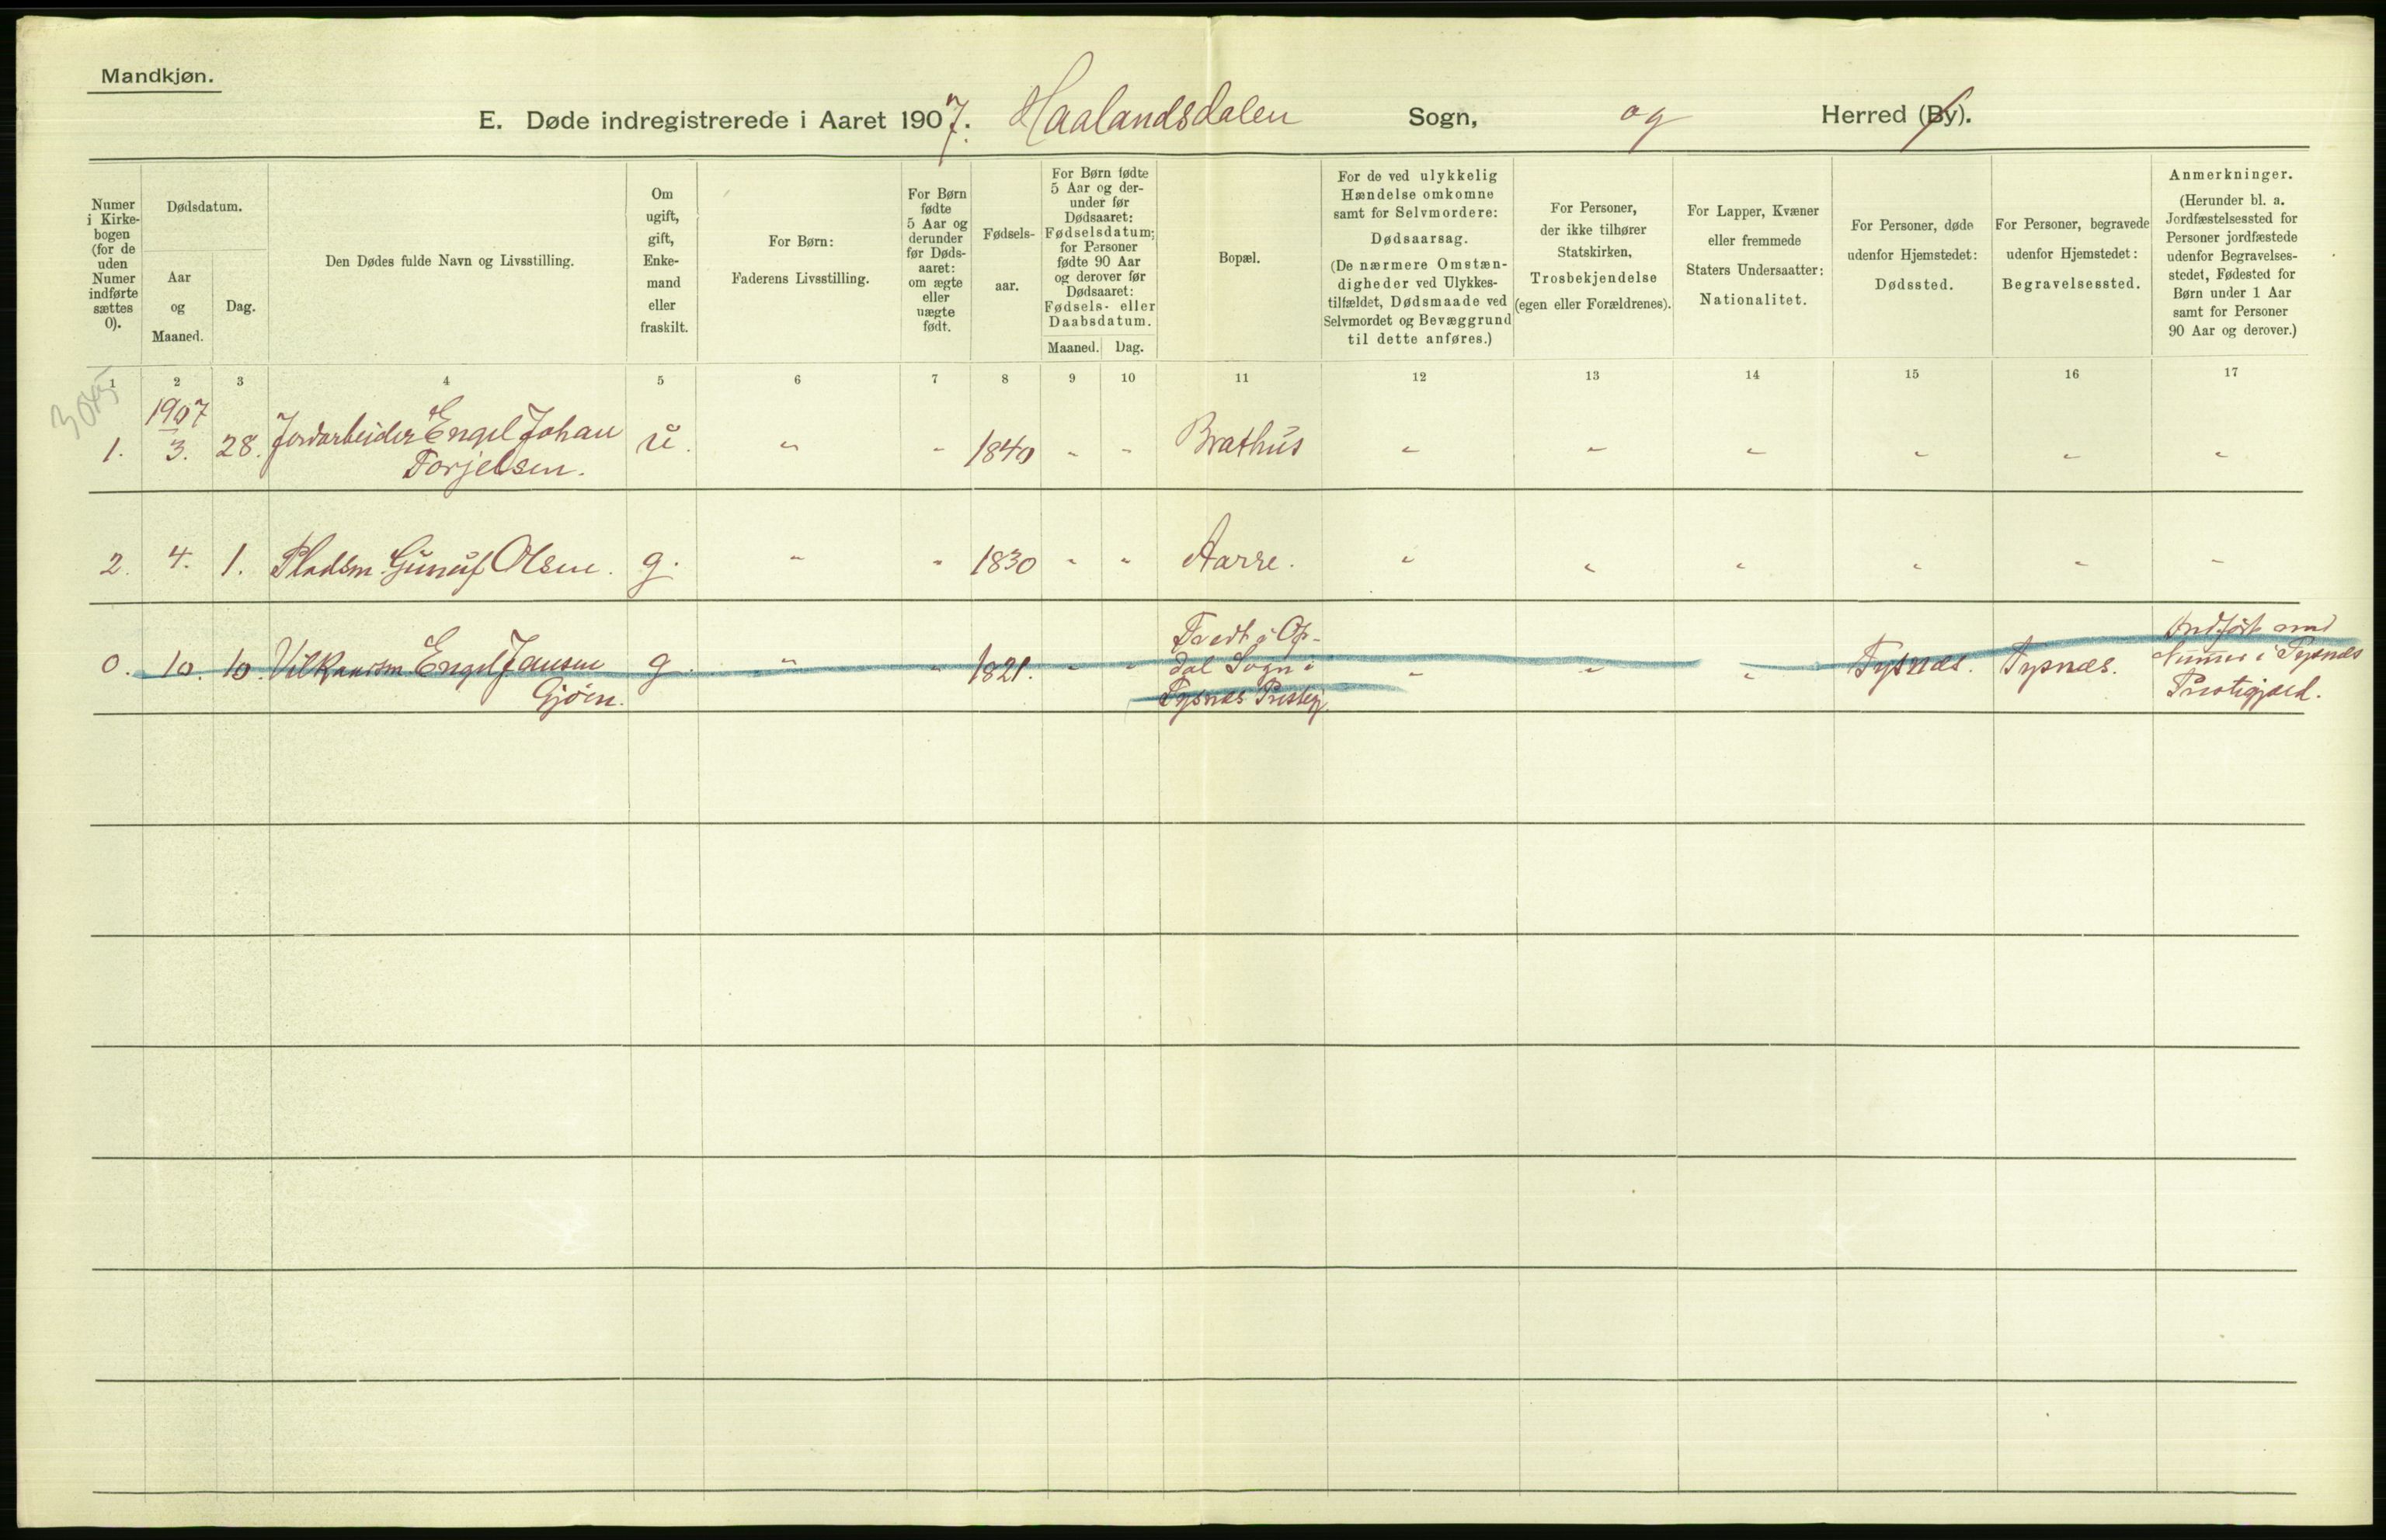 Mandkjøn.
E. Døde indregistrerede i Aaret 1907. Haalandsdalen Sogn, og Herred (By).
Numer i Kirke-bogen (for de uden Numer indførte sættes 0).
Dødsdatum.
Aar og Maaned.
Dag.
Den Dødes fulde Navn og Livsstilling.
Om ugift, gift, Enke-mand eller fraskilt.
For Børn:
Faderens Livsstilling.
For Børn fødte 5 Aar og derunder før Døds-aaret: om ægte eller uægte født.
Fødsels-aar.
For Børn fødte 5 Aar og der-under før Dødsaaret: Fødselsdatum; for Personer fødte 90 Aar og derover før Dødsaaret: Fødsels- eller Daabsdatum.
Maaned. Dag.
Bopæl.
For de ved ulykkelig Hændelse omkomne samt for Selvmordere:
Dødsaarsag.
(De nærmere Omstæn-digheder ved Ulykkes-tilfældet, Dødsmaade ved Selvmordet og Bevæggrund til dette anføres.)
For Personer, der ikke tilhører Statskirken,
Trosbekjendelse
(egen eller Forældrenes).
For Lapper, Kvæner eller fremmede Staters Undersaatter:
Nationalitet.
For Personer, døde udenfor Hjemstedet:
Dødssted.
For Personer, begravede udenfor Hjemstedet:
Begravelsessted.
Anmerkninger.
(Herunder bl. a. Jordfæstelsessted for Personer jordfæstede udenfor Begravelses-stedet, Fødested for Børn under 1 Aar samt for Personer 90 Aar og derover.)
1 2 3 4 5 6 7 8 9 10 11 12 13 14 15 16 17
1907
1. 3. 28. Jordarbeider Engel Johan u. " " 1840 " " Brathus " " " " " "
Torjelsen.
2. 4. 1. Pladsm. Gunuf Olsen. g. " " 1830 " " Aarre. " " " " " "
0. 10. 10. Vilkaarsm Engel Jansen g. " " 1821. " " Tvedt i Op-
dal Sogn i " " " Tysnæs. Tysnæs. Indført med
Gjøen. Tysnæs Prestegj. Numer i Tysnæs
Prestegjeld.